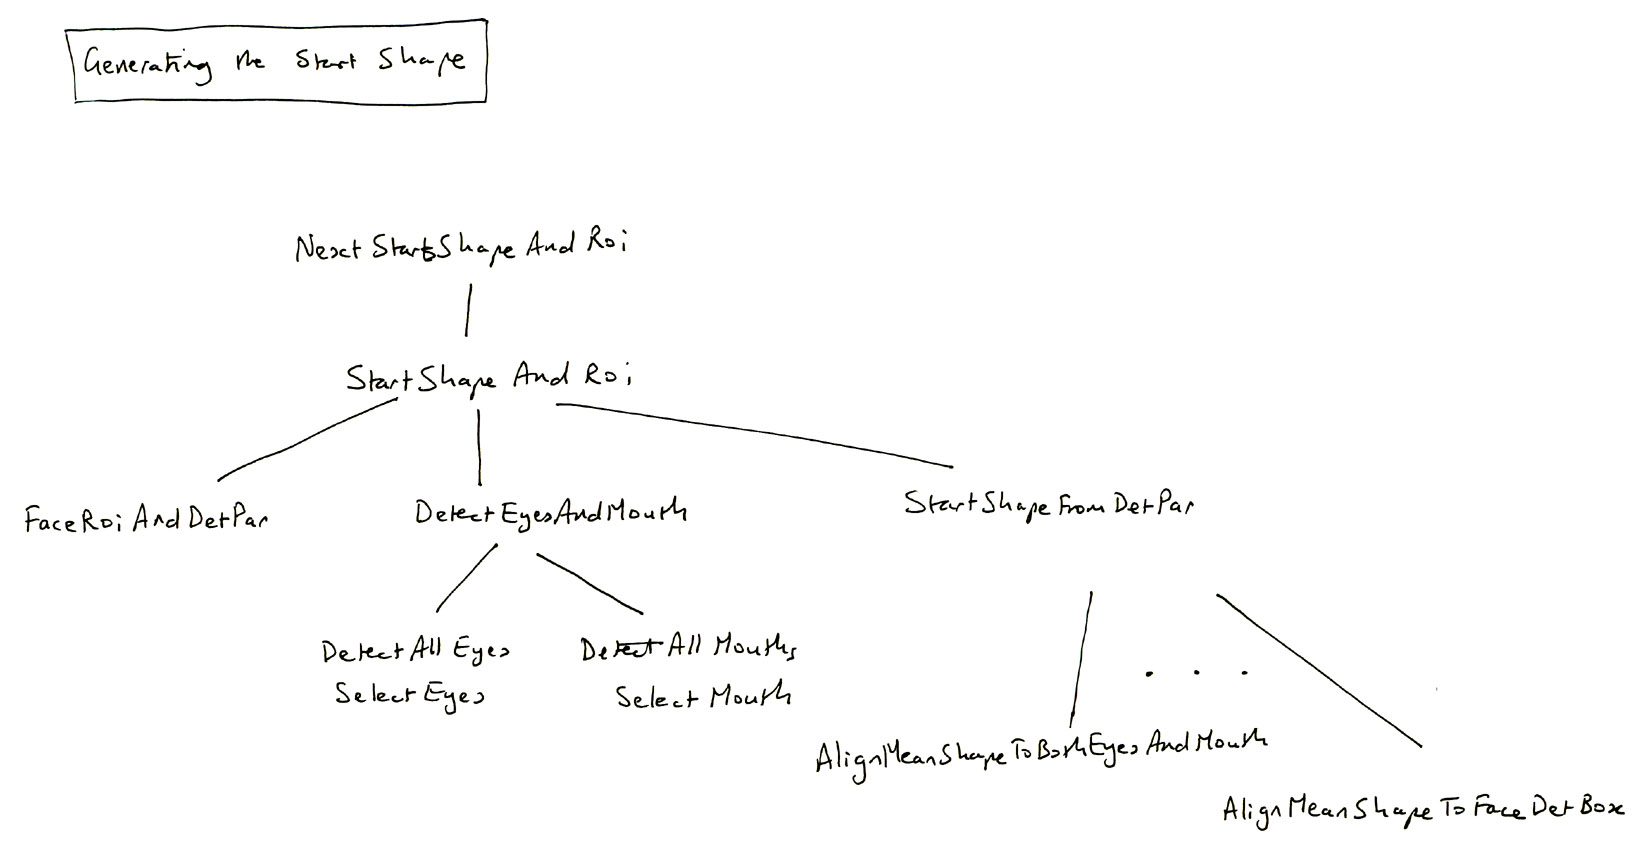 Generating the Start Shape
Next StartShape And Roi
StartShape And Roi
FaceRoi And DetPar
Detect EyesAndMouth
StartShapeFromDetPar
DetectAll Eyes
Select Eyes
Detect All Mouths
Select Mouth
AlignMeanShapeToBothEyesAndMouth
. . .
AlignMeanShapeToFaceDetBox